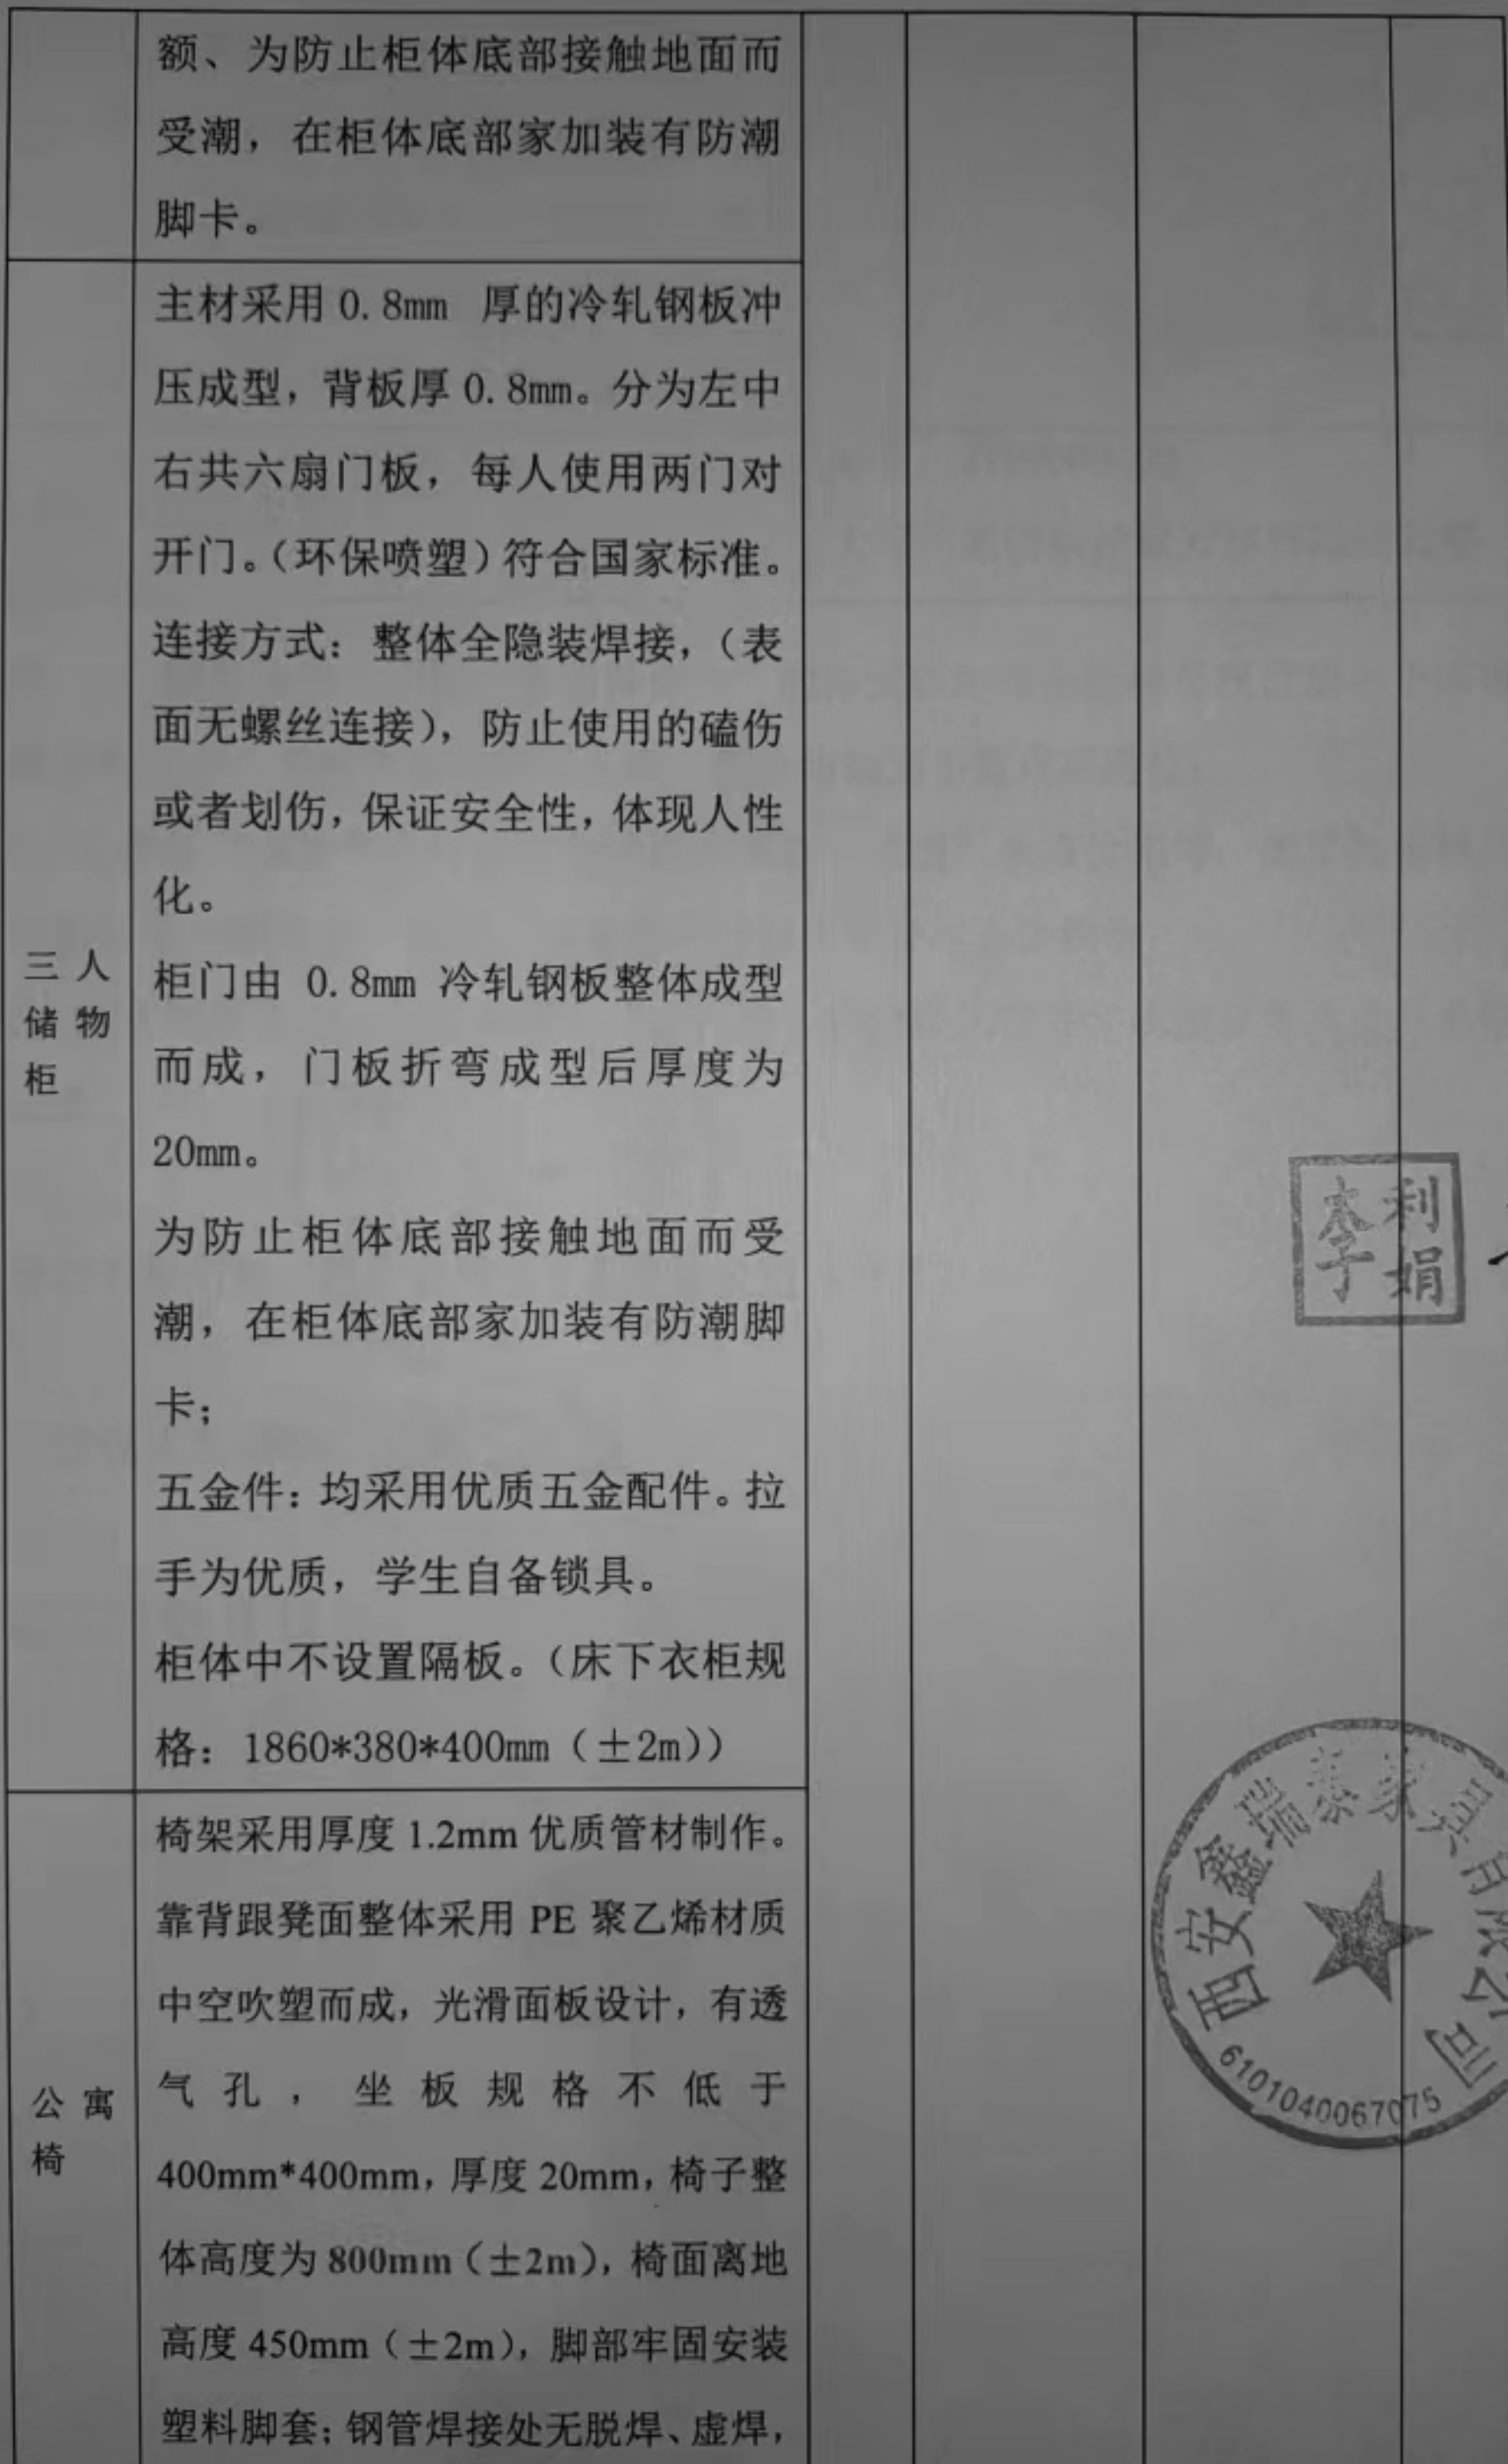 额、为防止柜体底部接触地面而
受潮，在柜体底部家加装有防潮
脚卡。
三人
储物
柜
主材采用 0.8mm 厚的冷轧钢板冲
压成型，背板厚 0.8mm。分为左中
右共六扇门板，每人使用两门对
开门。（环保喷塑）符合国家标准。
连接方式：整体全隐装焊接，（表
面无螺丝连接），防止使用的磕伤
或者划伤，保证安全性，体现人性
化。
柜门由 0.8mm 冷轧钢板整体成型
而成，门板折弯成型后厚度为
20mm。
为防止柜体底部接触地面而受
潮，在柜体底部家加装有防潮脚
卡；
五金件：均采用优质五金配件。拉
手为优质，学生自备锁具。
柜体中不设置隔板。（床下衣柜规
格：1860*380*400mm（±2m））
公寓
椅
椅架采用厚度 1.2mm 优质管材制作。
靠背跟凳面整体采用 PE 聚乙烯材质
中空吹塑而成，光滑面板设计，有透
气孔，坐板规格不低于
400mm*400mm，厚度 20mm，椅子整
体高度为 800mm（±2m），椅面离地
高度 450mm（±2m），脚部牢固安装
塑料脚套；钢管焊接处无脱焊、虚焊，
李利娟
西安鑫瑞泰家具有限公司
6101040067075